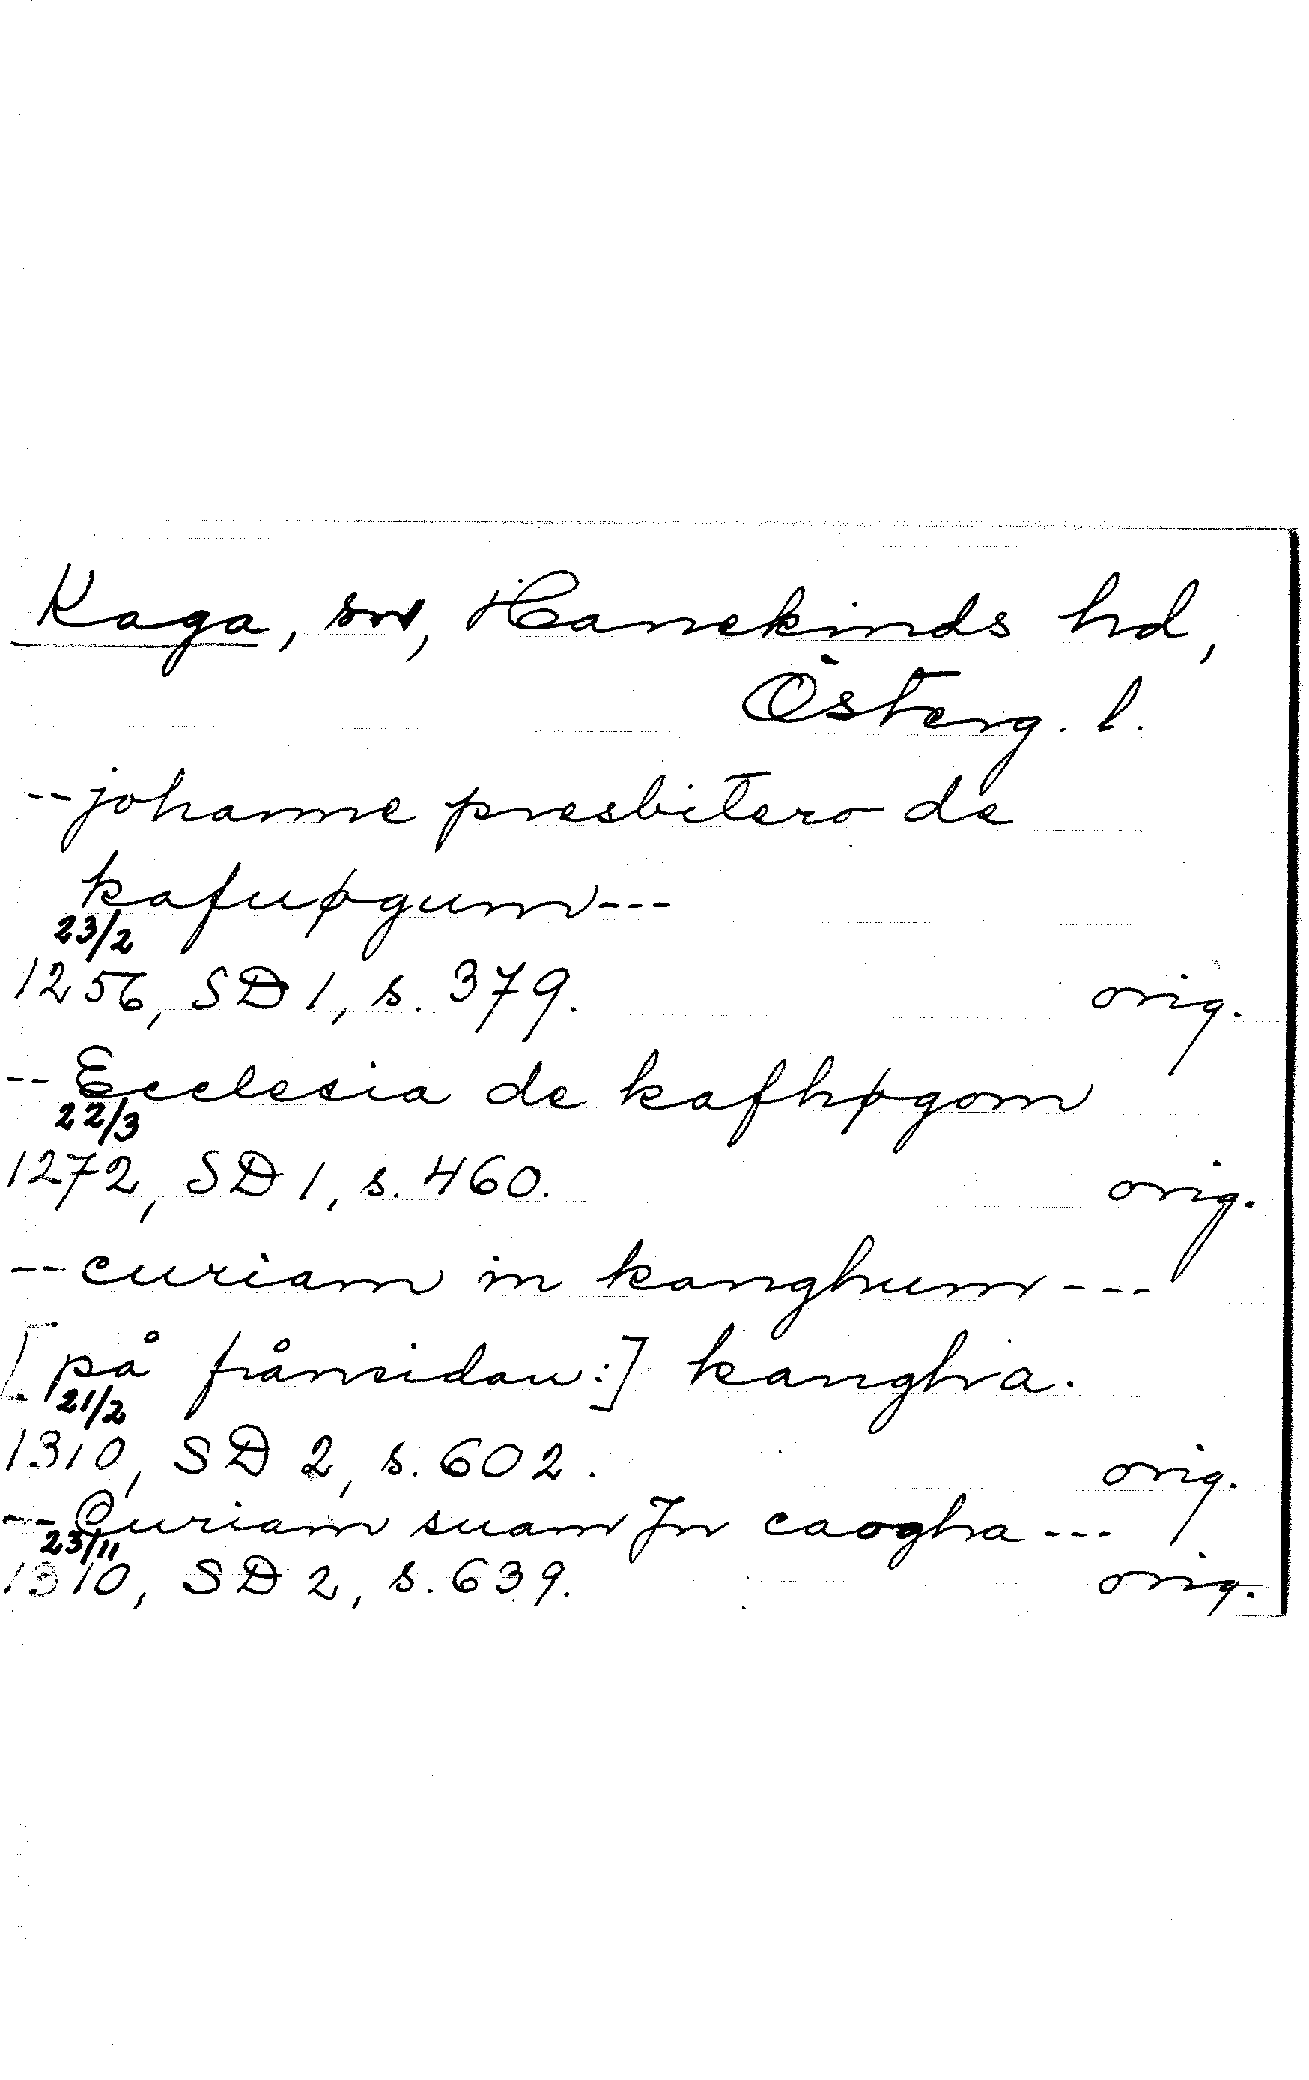 Kaga, sn, Hanekinds hd,
Österg. l.
--johanne presbitero de
kafuøgum---
23/2
1256, SD 1, s. 379. orig.
--Ecclesia de kafhøgom
22/3
1272, SD 1, s. 460. orig.
--curiam in kanghum---
[på frånsidan:] kangha.
21/2
1310, SD 2, s. 602. orig.
--Curiam suam Jn caogha---
23/11
1310, SD 2, s. 639. orig.